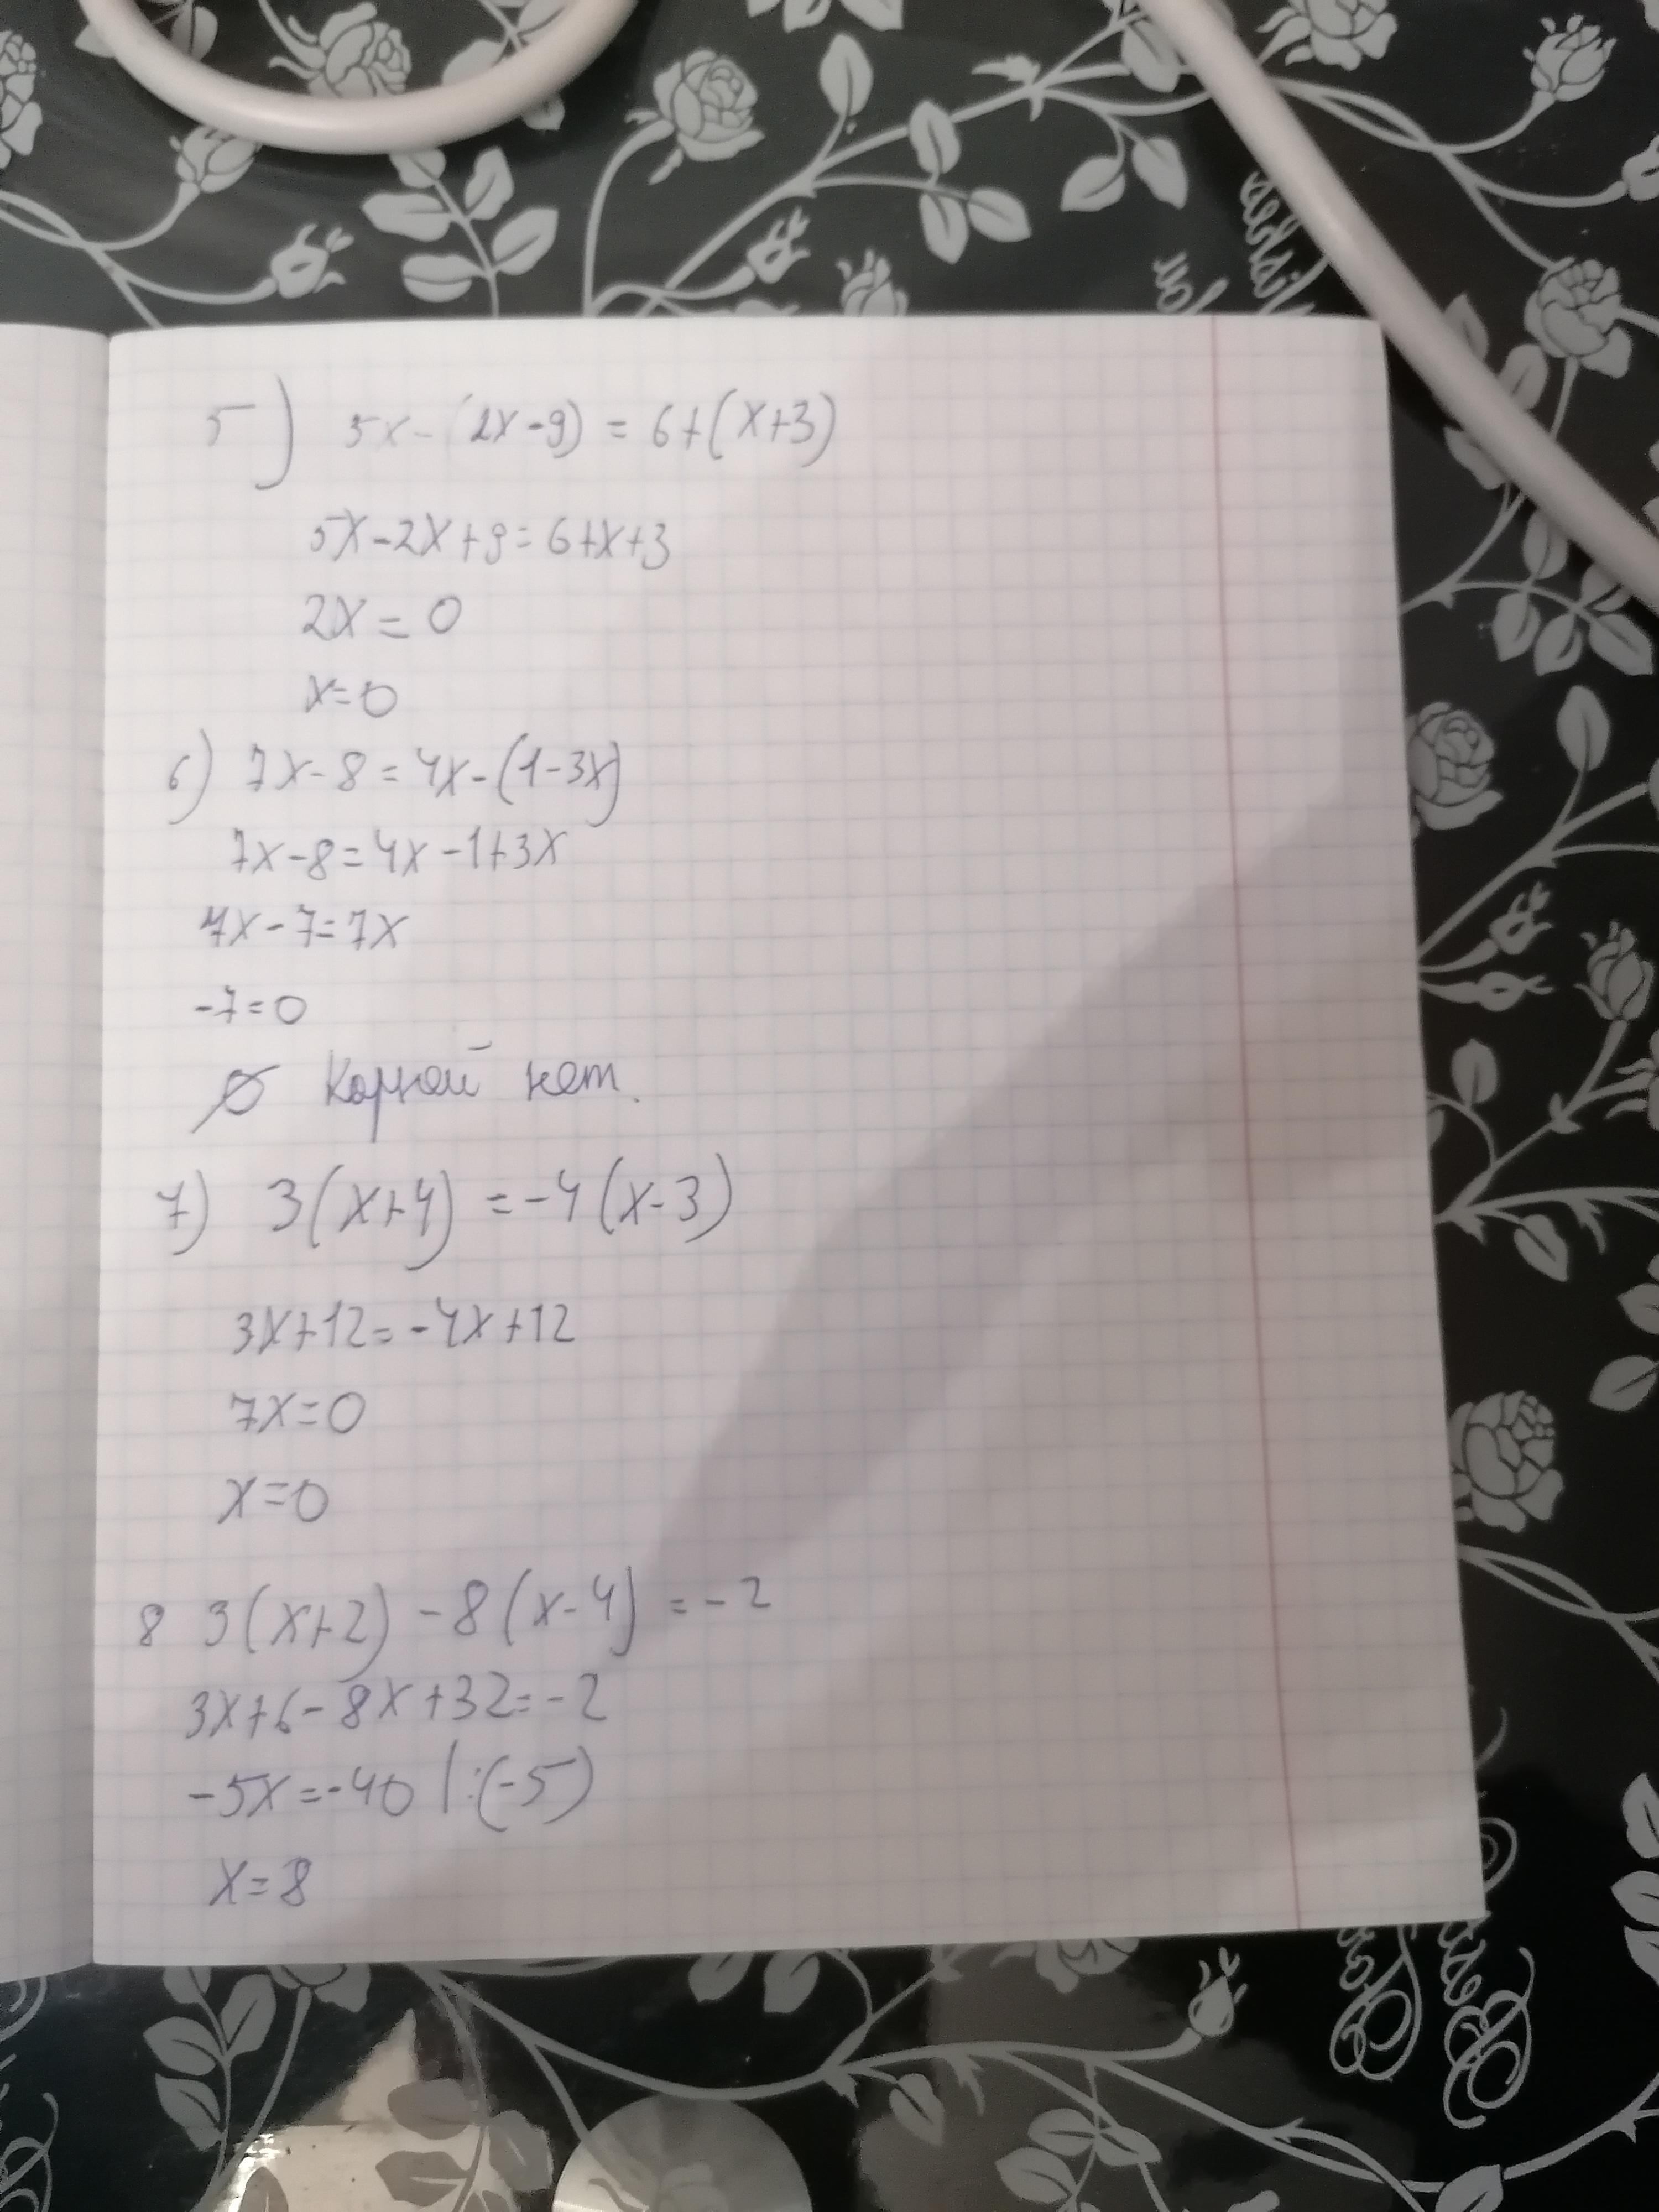 5) 5x-(2x-9)=6+(x+3)
5x-2x+9=6+x+3
2x=0
x=0
6) 7x-8=4x-(1-3x)
7x-8=4x-1+3x
7x-7=7x
-7=0
∅ Корней нет.
7) 3(x+4)=-4(x-3)
3x+12=-4x+12
7x=0
x=0
8 3(x+2)-8(x-4)=-2
3x+6-8x+32=-2
-5x=-40 |:(-5)
x=8